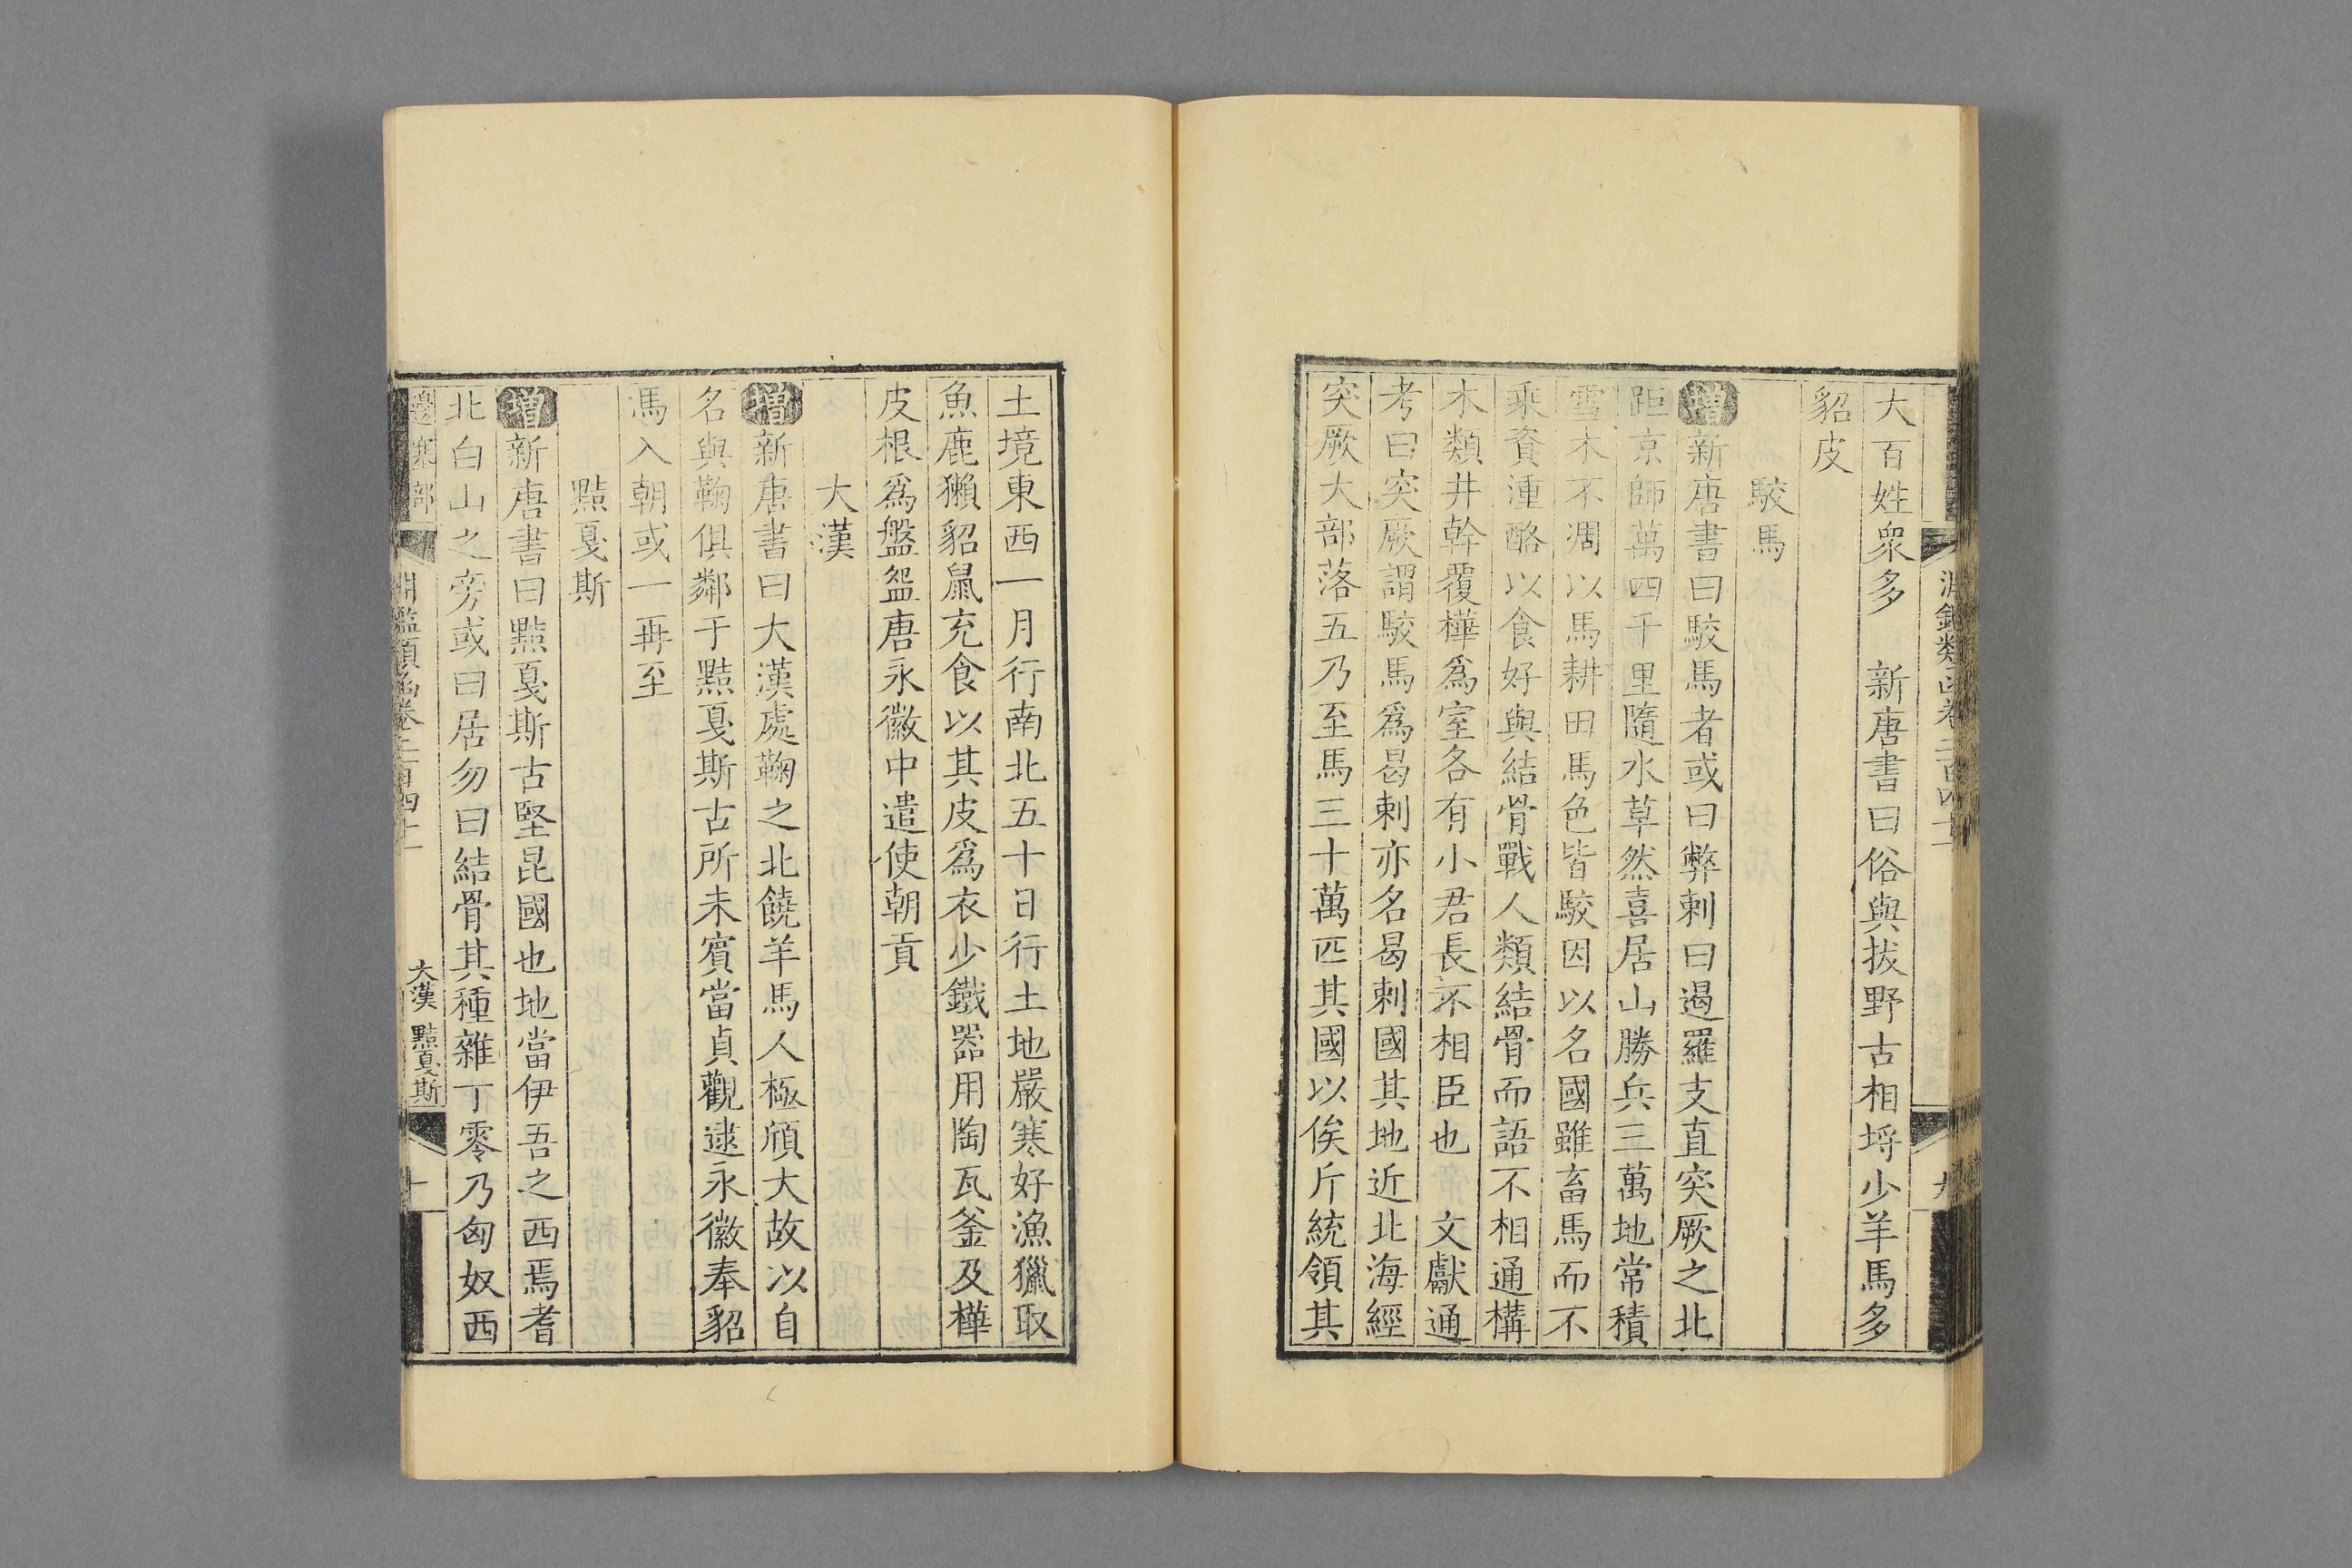 大百姓衆多　新唐書曰俗與拔野古相埒少羊馬多
貂皮
駮馬
增新唐書曰駮馬者或曰弊剌曰遏羅支直突厥之北
距京師萬四千里隨水草然喜居山勝兵三萬地常積
雪木不凋以馬耕田馬色皆駮因以名國雖畜馬而不
乘資湩酪以食好與結骨戰人類結骨而語不相通構
木類井幹覆樺爲室各有小君長不相臣也　文獻通
考曰突厥謂駮馬爲曷剌亦名曷剌國其地近北海經
突厥大部落五乃至馬三十萬匹其國以俟斤統領其
土境東西一月行南北五十日行土地嚴寒好漁獵取
魚鹿獺貂鼠充食以其皮爲衣少鐵器用陶瓦釜及樺
皮根爲盤盌唐永徽中遣使朝貢
大漢
增新唐書曰大漢處鞠之北饒羊馬人極頎大故以自
名與鞠俱鄰于黠戛斯古所未賓當貞觀逮永徽奉貂
馬入朝或一再至
黠戛斯
增新唐書曰黠戛斯古堅昆國也地當伊吾之西焉耆
北白山之旁或曰居勿曰結骨其種雜丁零乃匈奴西
邊塞部
淵鑑類函卷二百四十一
大漢　黠戛斯
十